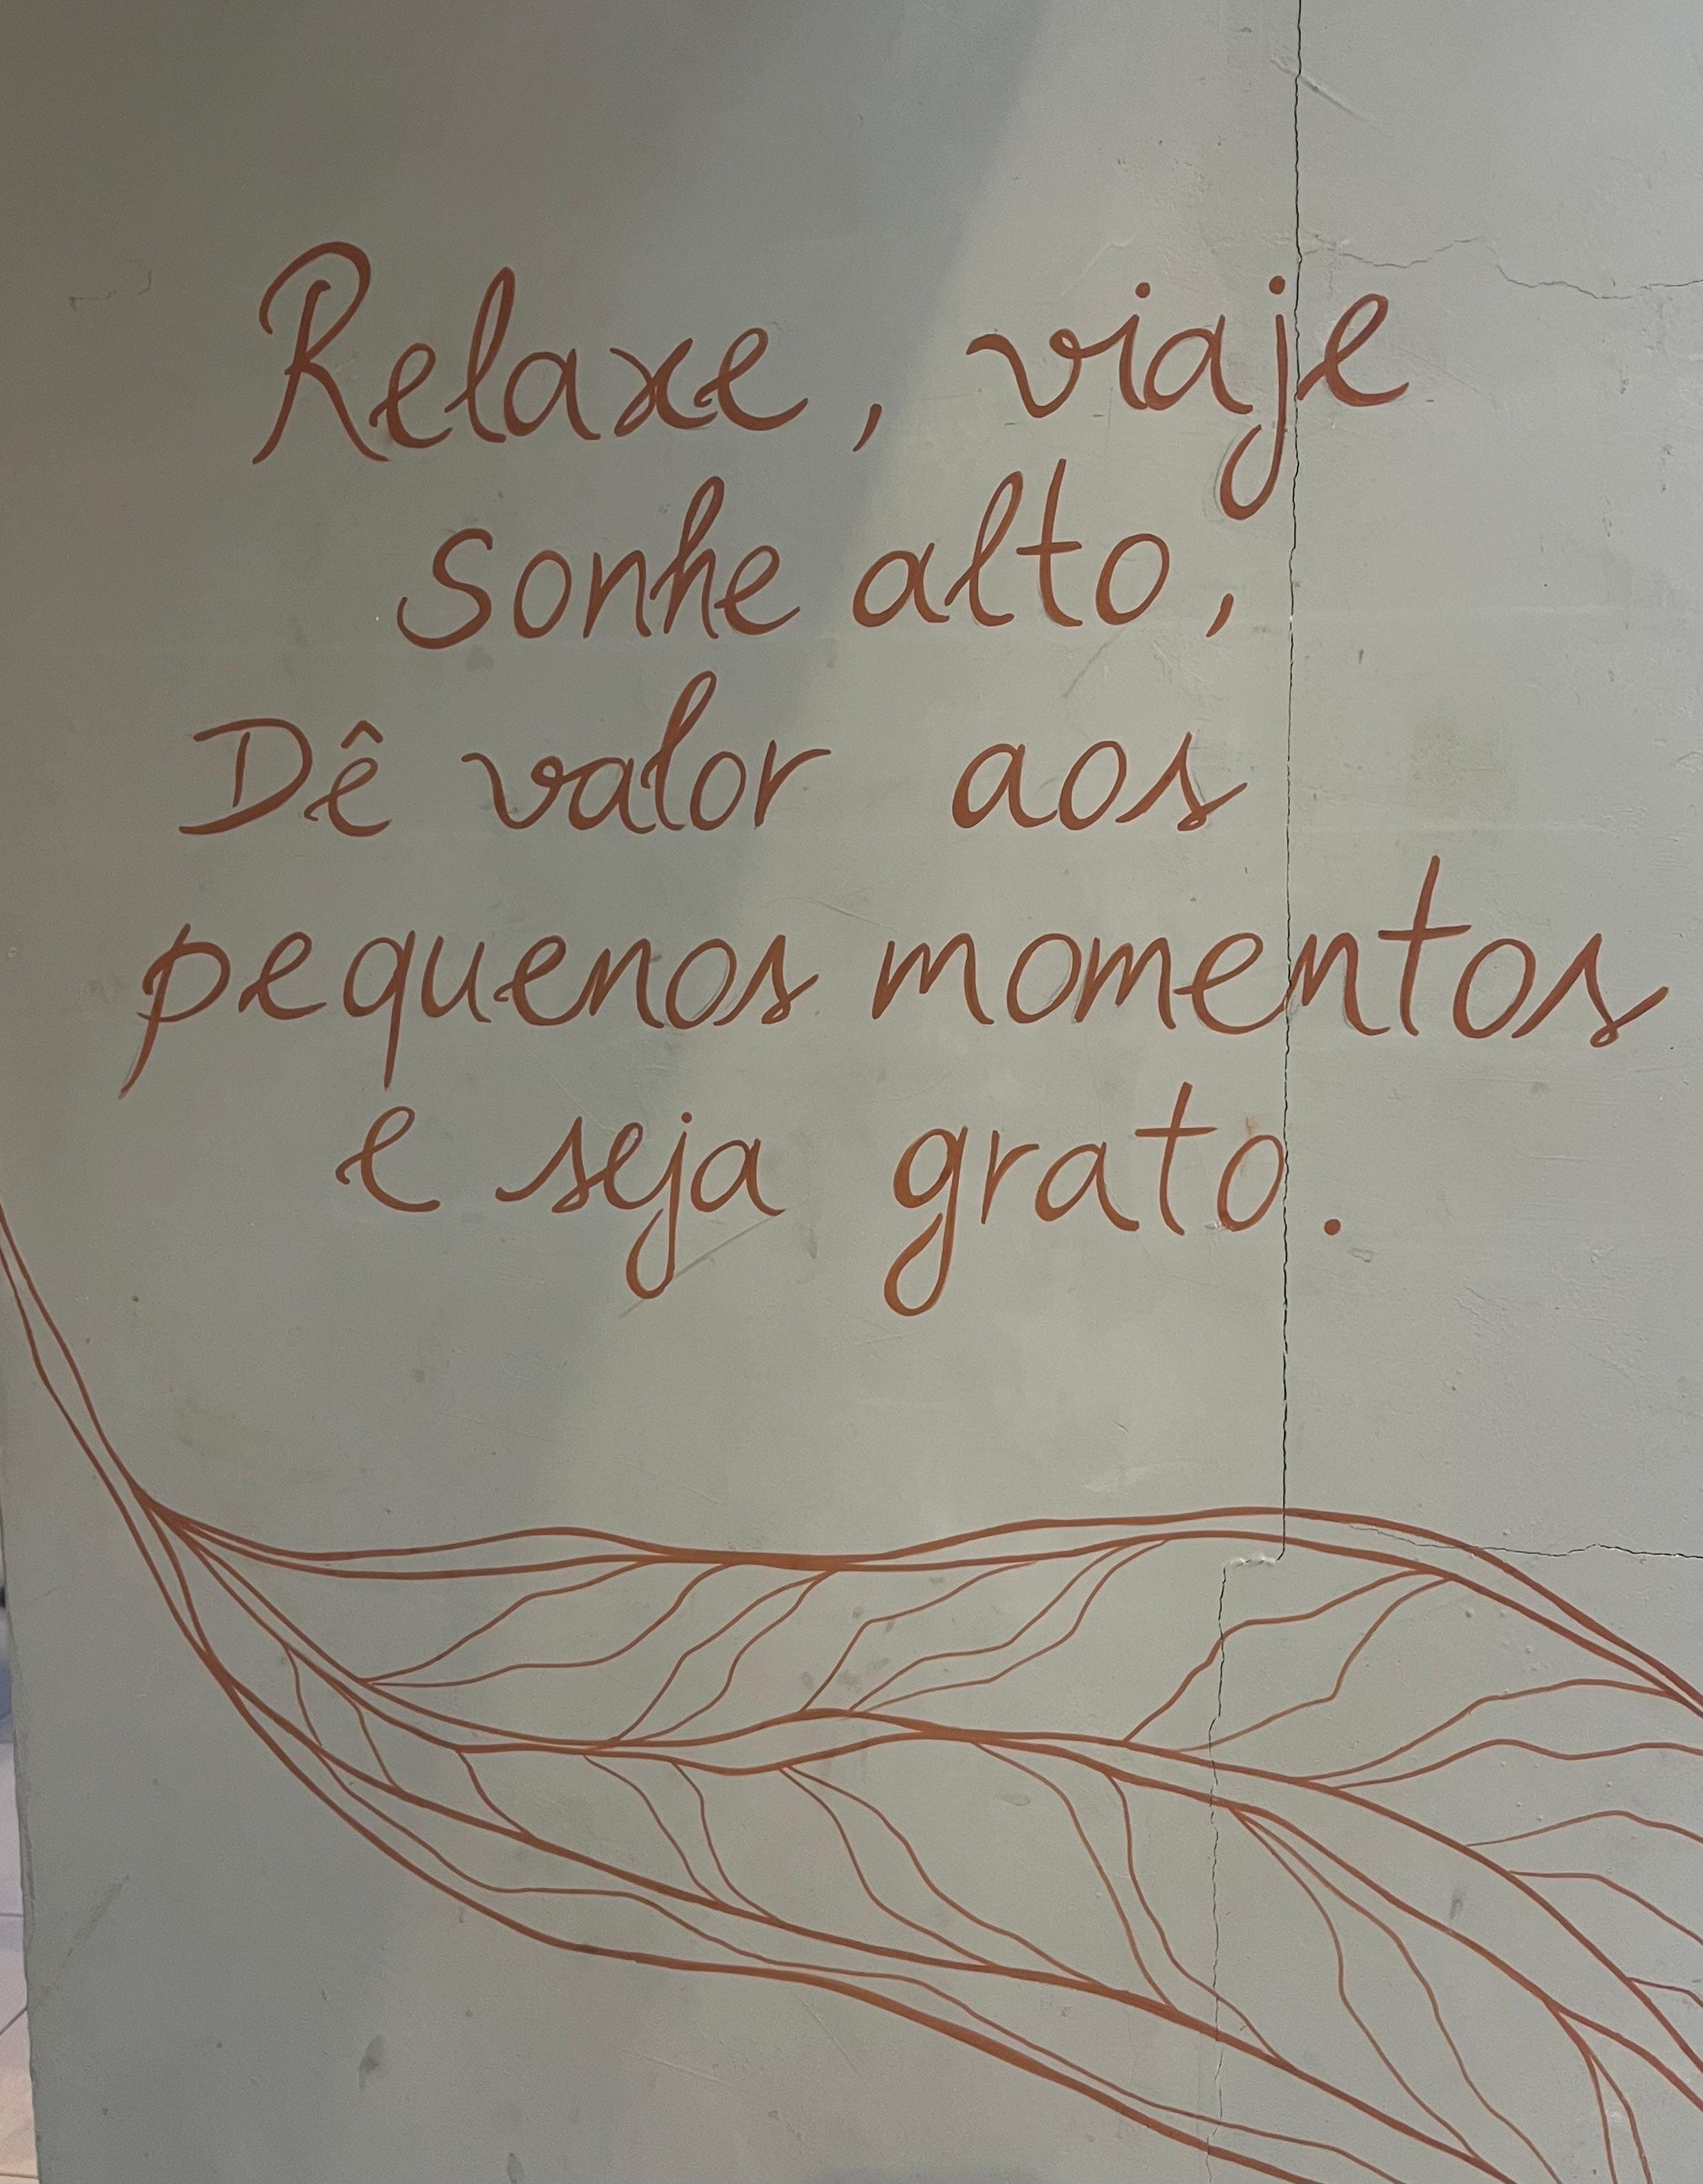 Relaxe, viaje
sonhe alto,
Dê valor aos
pequenos momentos
e seja grato.